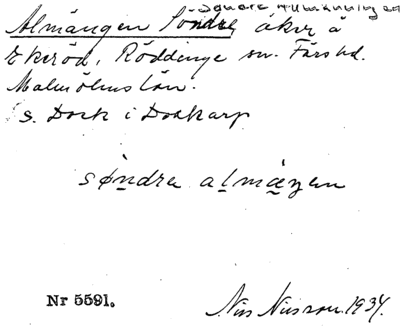 Södra Allmänningen
Almängen Söndre åker å
Ekeröd, Röddinge sn. Färs hd.
Malmöhus län.
s. Dock i Dockarp
søndre almängen
Nr 5591.
Nils Nilsson. 1934.